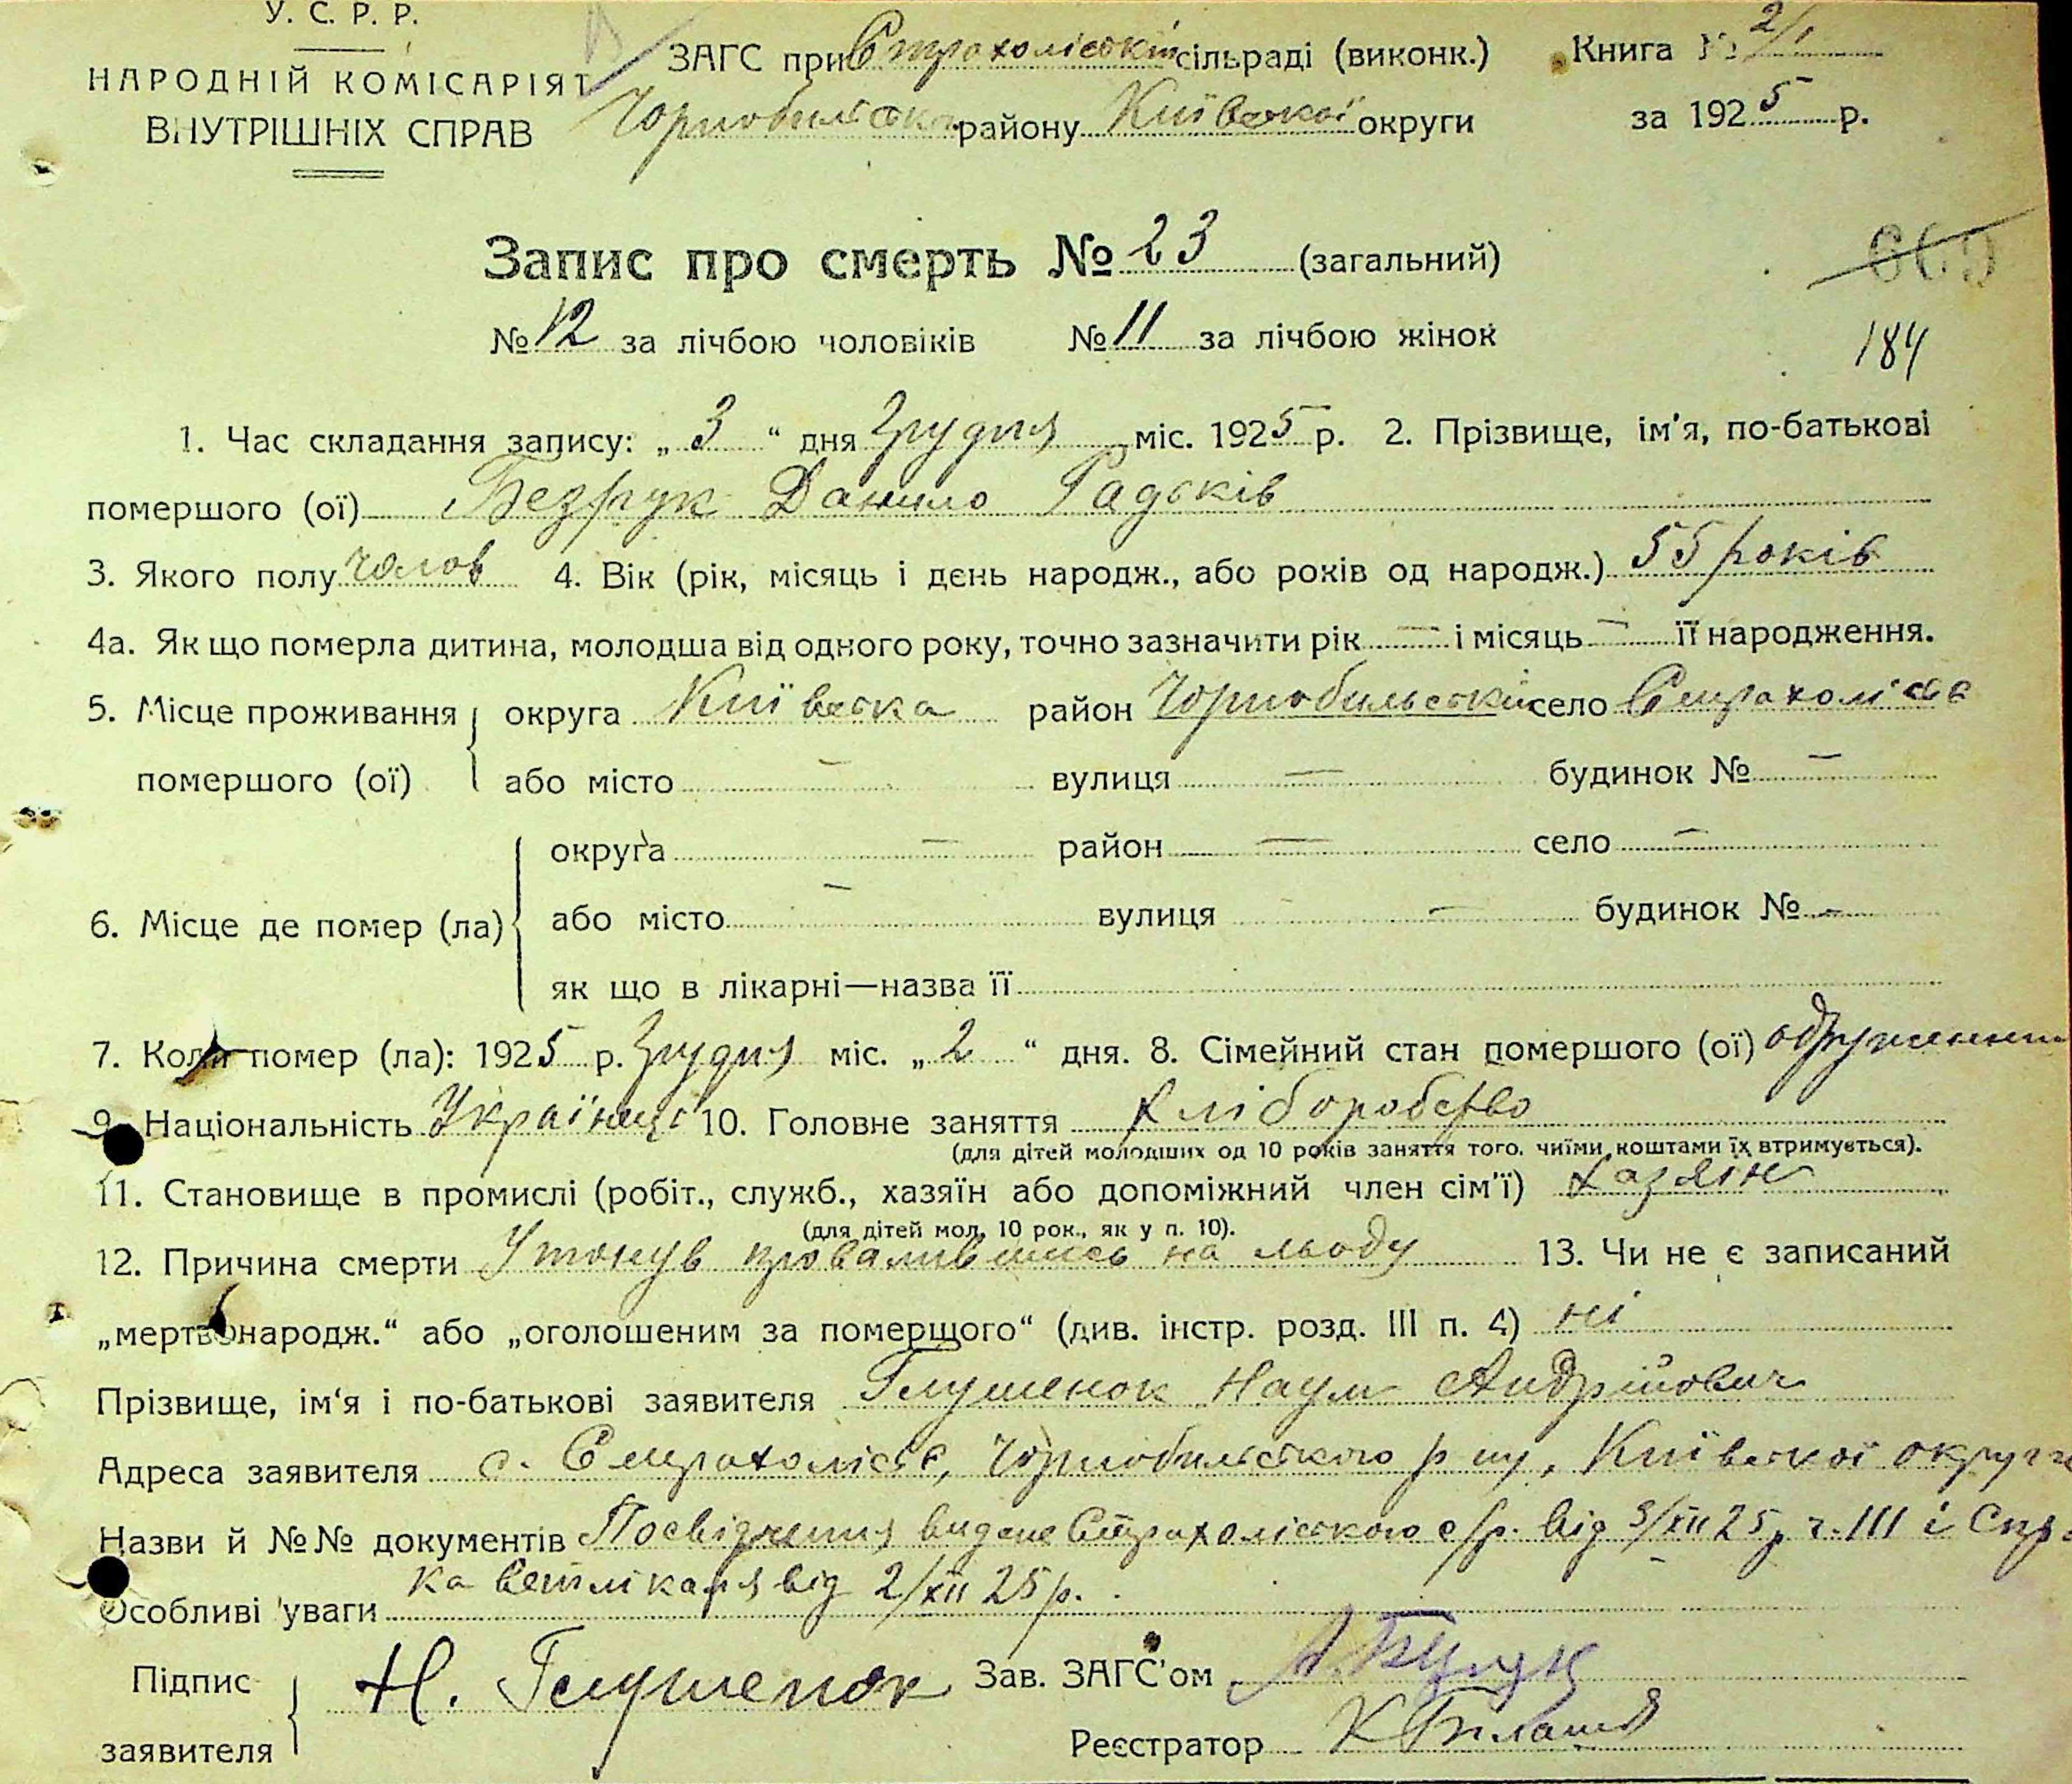 У. С. Р. Р.
НАРОДНІЙ КОМІСАРІЯТ
ВНУТРІШНІХ СПРАВ
ЗАГС при Страхоліській сільраді (виконк.)
Чорнобильськ. району Київської округи
Книга № 2/1
за 1925 р.
Запис про смерть № 23 (загальний)
№ 12 за лічбою чоловіків № 11 за лічбою жінок
669
184
1. Час складання запису: „3“ дня грудня міс. 1925 р. 2. Прізвище, ім'я, по-батькові
помершого (ої) Безрук Данило Радьків
3. Якого полу чолов 4. Вік (рік, місяць і день народж., або років од народж.) 55 років
4а. Як що померла дитина, молодша від одного року, точно зазначити рік — і місяць — її народження.
5. Місце проживання округа Київська район Чорнобильський село Страхолісся
помершого (ої) або місто — вулиця — будинок № —
округа — район — село —
6. Місце де помер (ла) або місто — вулиця — будинок № —
як що в лікарні—назва її
7. Коли помер (ла): 1925 р. грудня міс. „2“ дня. 8. Сімейний стан помершого (ої) одружений
9. Національність Українець 10. Головне заняття хліборобство
(для дітей молодших од 10 років заняття того, чиїми коштами їх втримується).
11. Становище в промислі (робіт., служб., хазяїн або допоміжний член сім'ї) хазяін
(для дітей мол. 10 рок., як у п. 10).
12. Причина смерти Утонув провалившись на льоду 13. Чи не є записаний
„мертвонародж.“ або „оголошеним за померщого“ (див. інстр. розд. III п. 4) ні
Прізвище, ім'я і по-батькові заявителя Глушенок Наум Андрійович
Адреса заявителя с. Страхолісся, Чорнобильського р-ну, Київської округи
Назви й №№ документів Посвідчення видане Страхоліського с/р. від 3/XII 25 р. ч. 111 і
від 2/XII 25 р.
Особливі уваги
Підпис заявителя Н. Глушенок Зав. ЗАГС'ом
Реєстратор